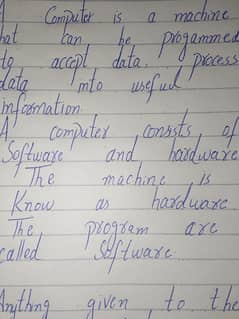 A Computer is a machine
hat can be progammed
to accept data. process
data into useful
Information
A computer consists of
Software and hardware
The machine is
Know as hardware
The program are
called Software.
Anything given to the